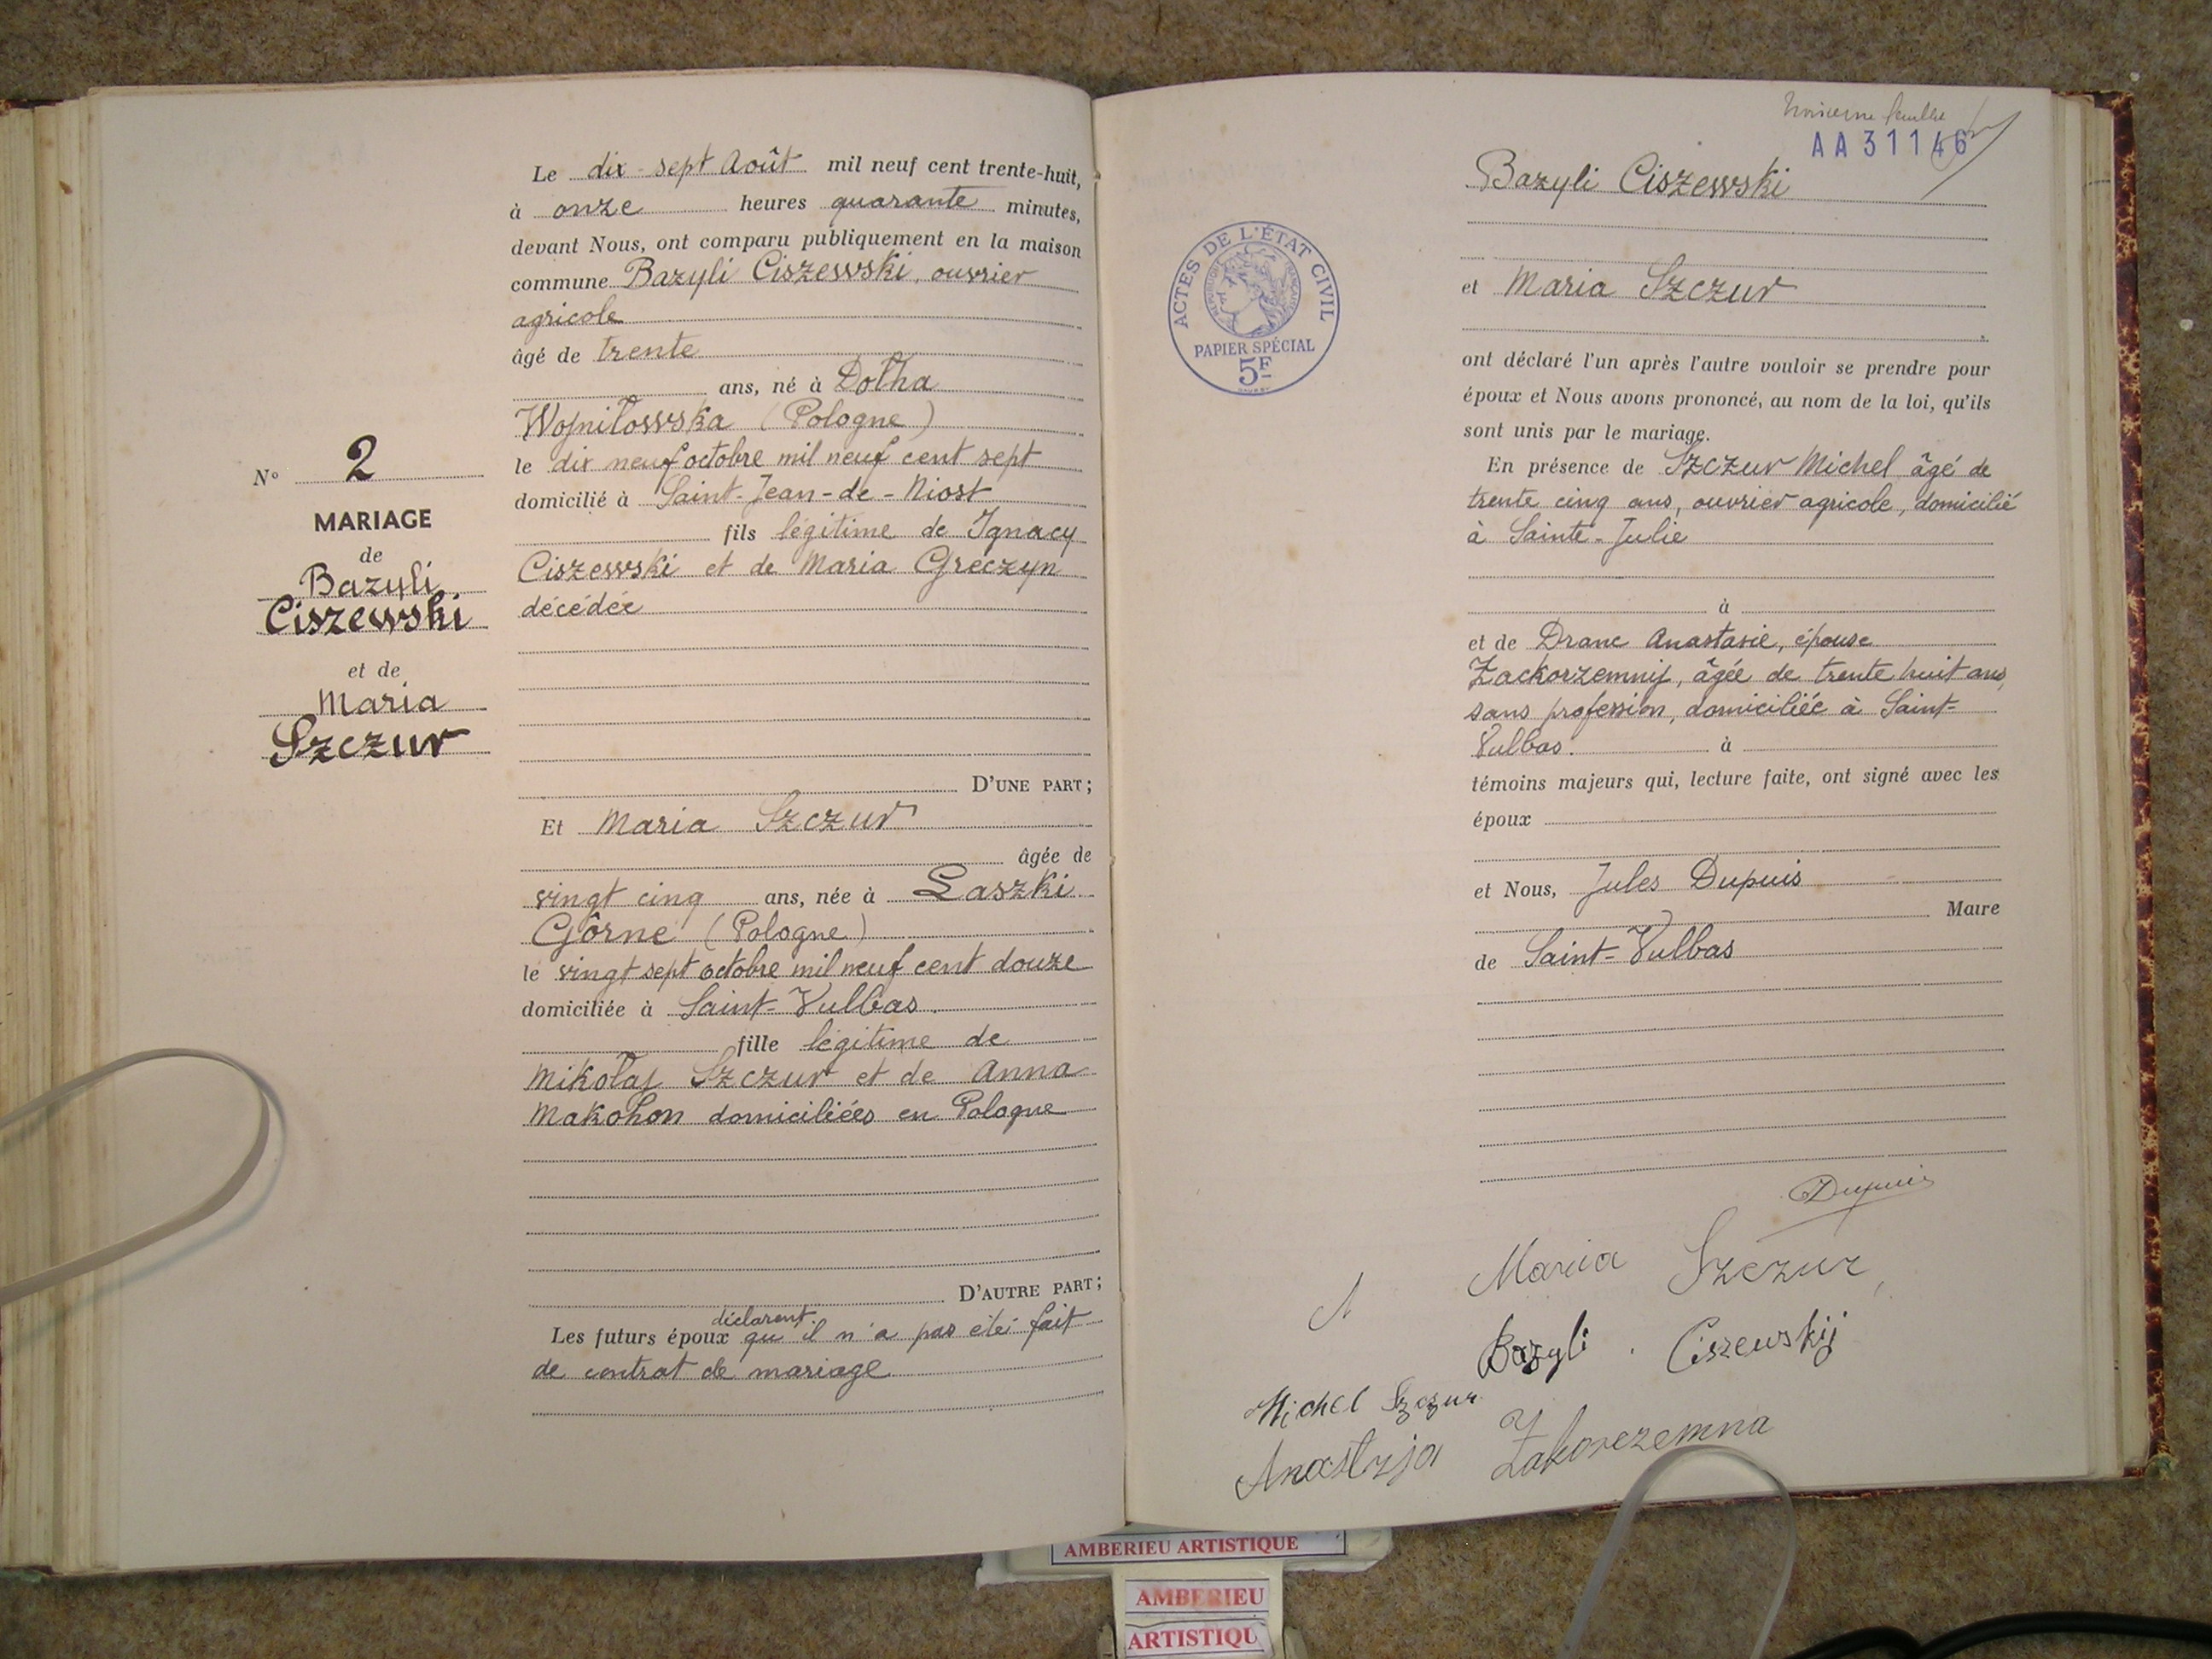 Le dix-sept Août mil neuf cent trente-huit,
à onze heures quarante minutes,
devant Nous, ont comparu publiquement en la maison
commune Bazyli Ciszewski, ouvrier
agricole
âgé de trente
ans, né à Dołha
Wojniłowska (Pologne)
le dix neuf octobre mil neuf cent sept
domicilié à Saint-Jean-de-Niost
fils légitime de Ignacy
Ciszewski et de Maria Greczyn
décédée
D'UNE PART;
Et Maria Szczur
âgée de
vingt cinq ans, née à Laszki
Górne (Pologne)
le vingt sept octobre mil neuf cent douze
domiciliée à Saint-Vulbas.
fille légitime de
Mikołaj Szczur et de Anna
Makohon domiciliées en Pologne
D'AUTRE PART;
déclarent
Les futurs époux qu'il n'a pas été fait
de contrat de mariage
N° 2
MARIAGE
de
Bazyli
Ciszewski
et de
Maria
Szczur
ACTES DE L'ÉTAT CIVIL
RÉPUBLIQUE FRANÇAISE
PAPIER SPÉCIAL
5F
AA31146
Bazyli Ciszewski
et Maria Szczur
ont déclaré l'un après l'autre vouloir se prendre pour
époux et Nous avons prononcé, au nom de la loi, qu'ils
sont unis par le mariage.
En présence de Szczur Michel âgé de
trente cinq ans, ouvrier agricole, domicilié
à Sainte-Julie
à
et de Dranc Anastasie, épouse
Zackorzemnij, âgée de trente huit ans,
sans profession, domiciliée à Saint-
Vulbas. à
témoins majeurs qui, lecture faite, ont signé avec les
époux
et Nous, Jules Dupuis
Maire
de Saint-Vulbas
Dupuis
Maria Szczur
Bazyli Ciszewskij
Michel Szczur
Anastzja Zakorezemna
AMBERIEU ARTISTIQUE
AMBERIEU
ARTISTIQU